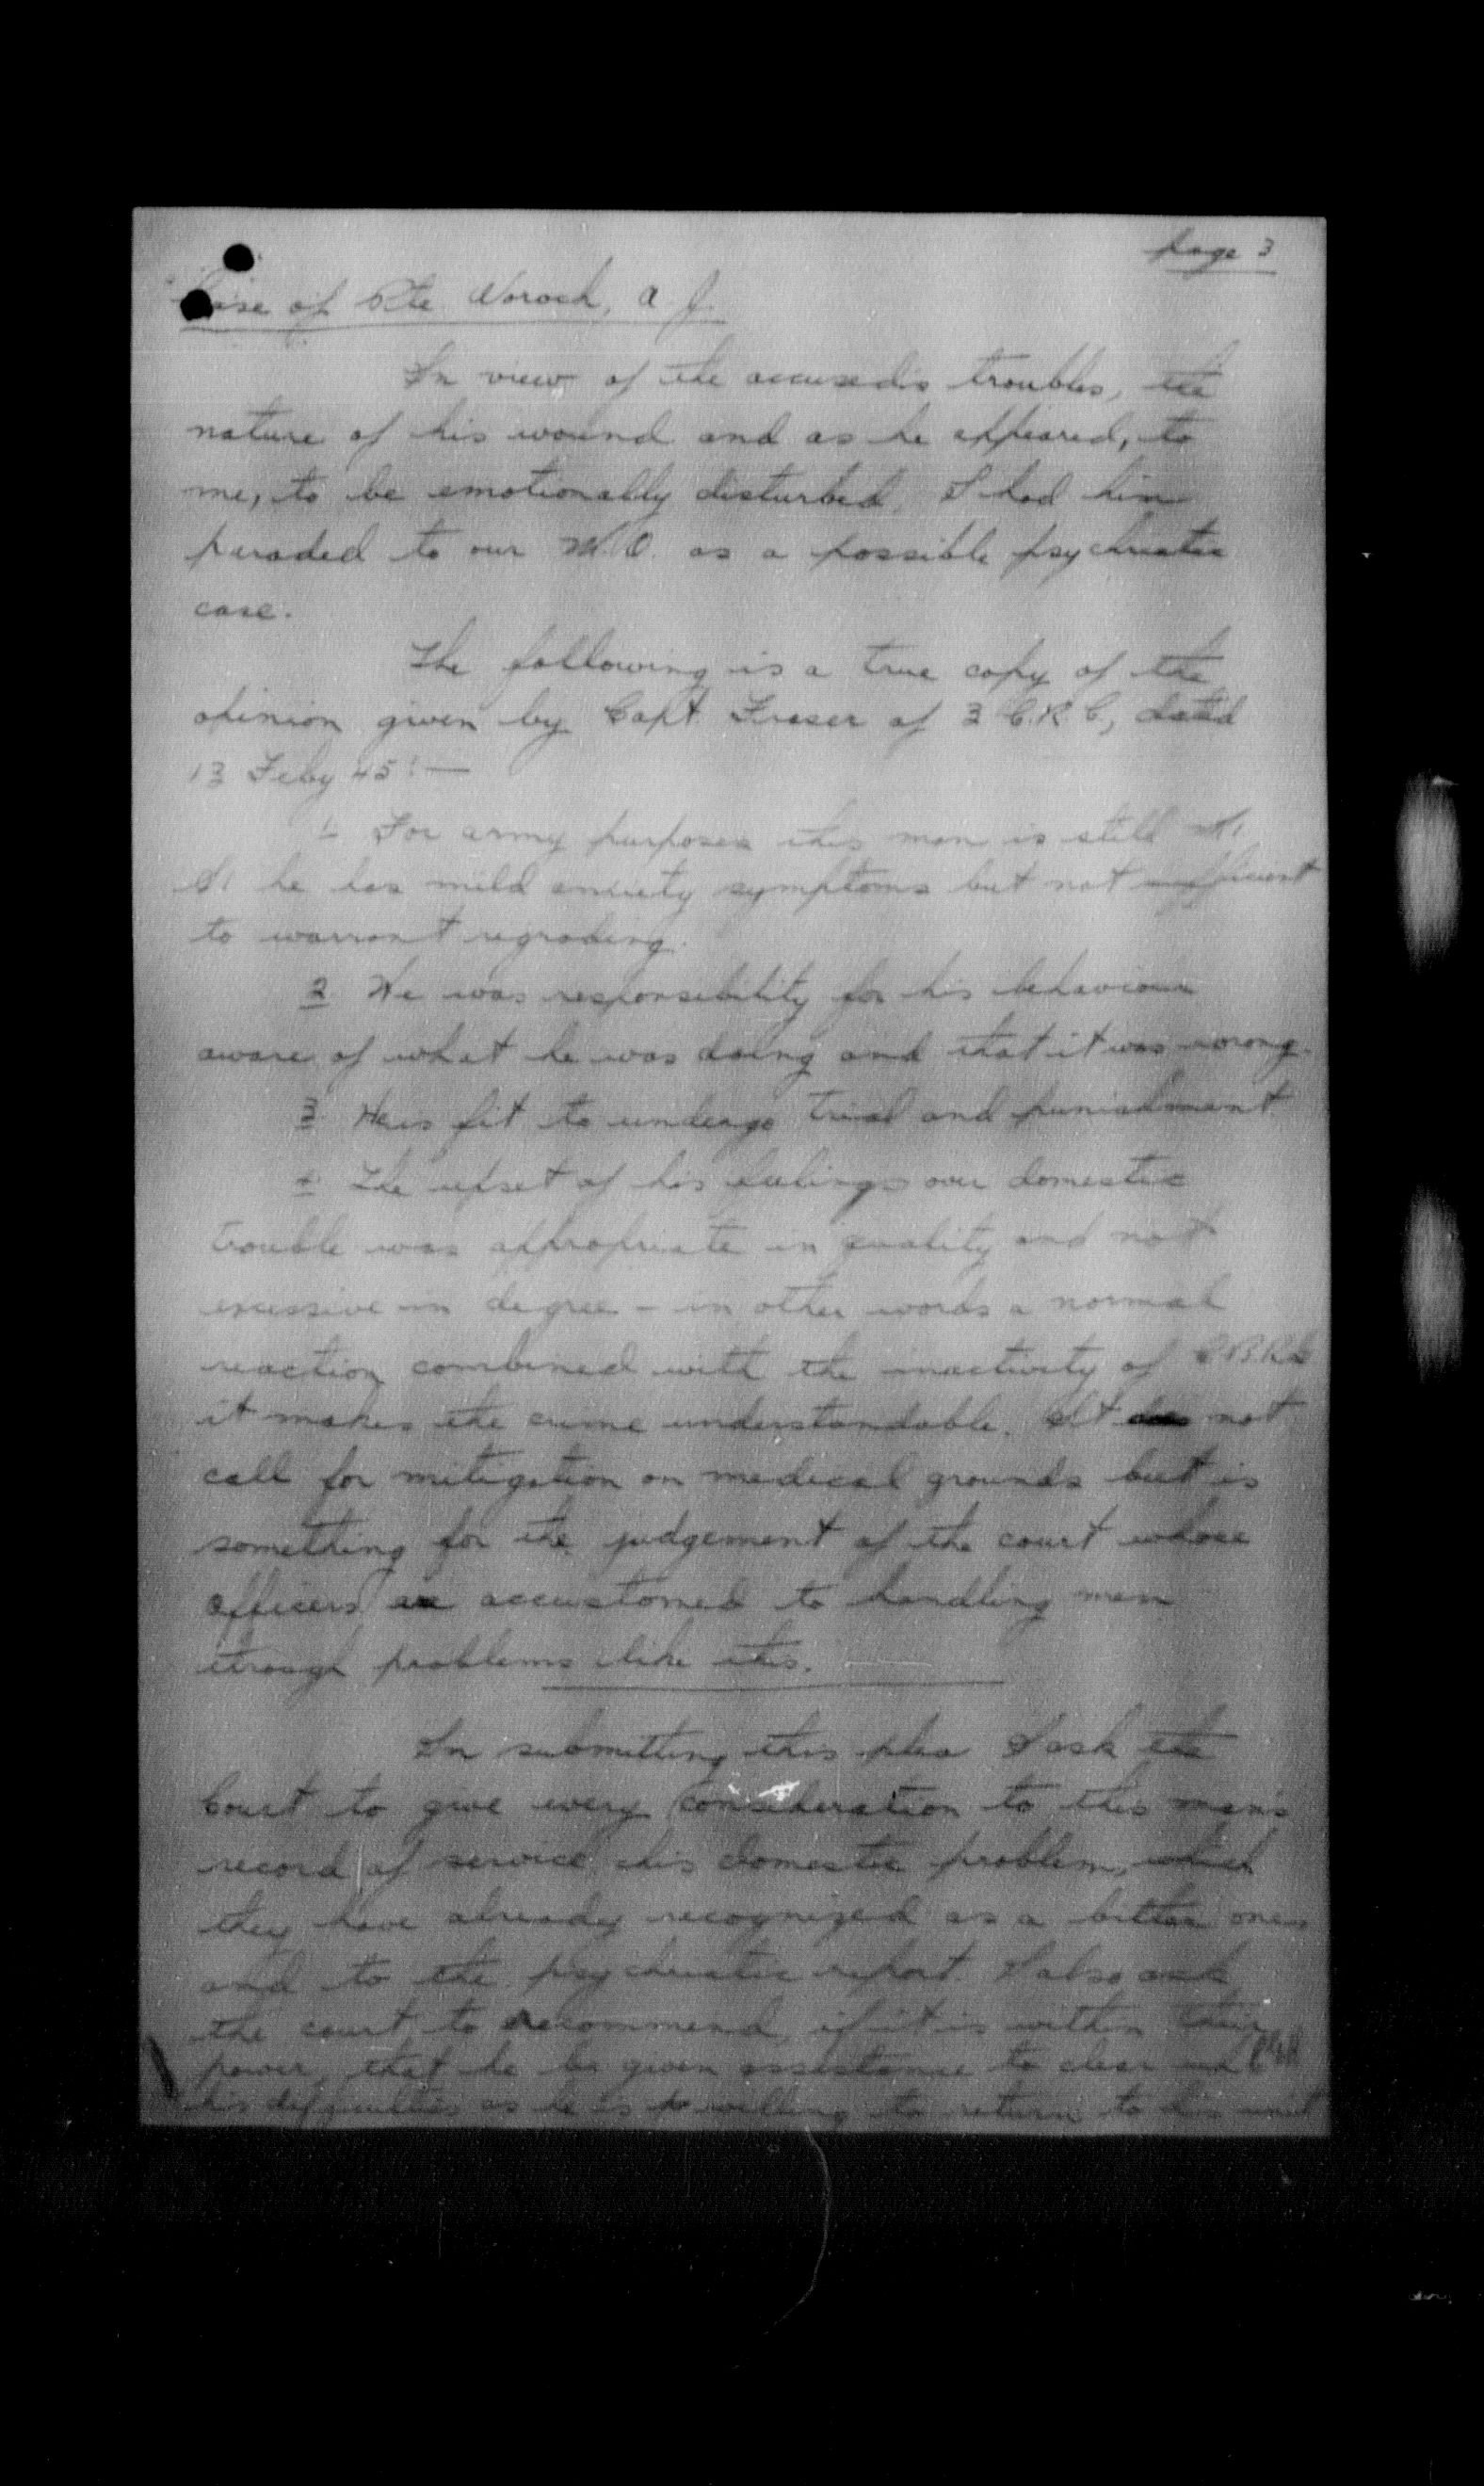 page 3
Case of Pte Woroch, A. J.
In view of the accused's troubles, the
nature of his wound and as he appeared, to
me, to be emotionally disturbed, I had him
paraded to our M.O. as a possible psychiatric
case.
The following is a true copy of the
opinion given by Capt. Fraser of C.R.C, dated
13 Feby 45:—
1 For army purposes this man is still M1
S1 he has mild anxiety symptoms but not sufficient
to warrant regrading.
2 He was responsibility for his behaviour
aware of what he was doing and that it was wrong.
3 He is fit to undergo trial and punishment
4 The upset of his feelings over domestic
trouble was appropriate in quality and not
excessive in degree – in other words a normal
reaction combined with the inactivity of
it makes the crime understandable. It does not
call for mitigation on medical grounds but is
something for the judgement of the court whose
officers are accustomed to handling men
through problems like this.
In submitting this plea I ask the
Court to give every consideration to this man's
record of service, his domestic problem, which
they have already recognized as a bitter one,
and to the psychiatric report. I also ask
the court to recommend, if it is within their
power, that he be given assistance to clear up
his difficulties as he is willing to return to his unit